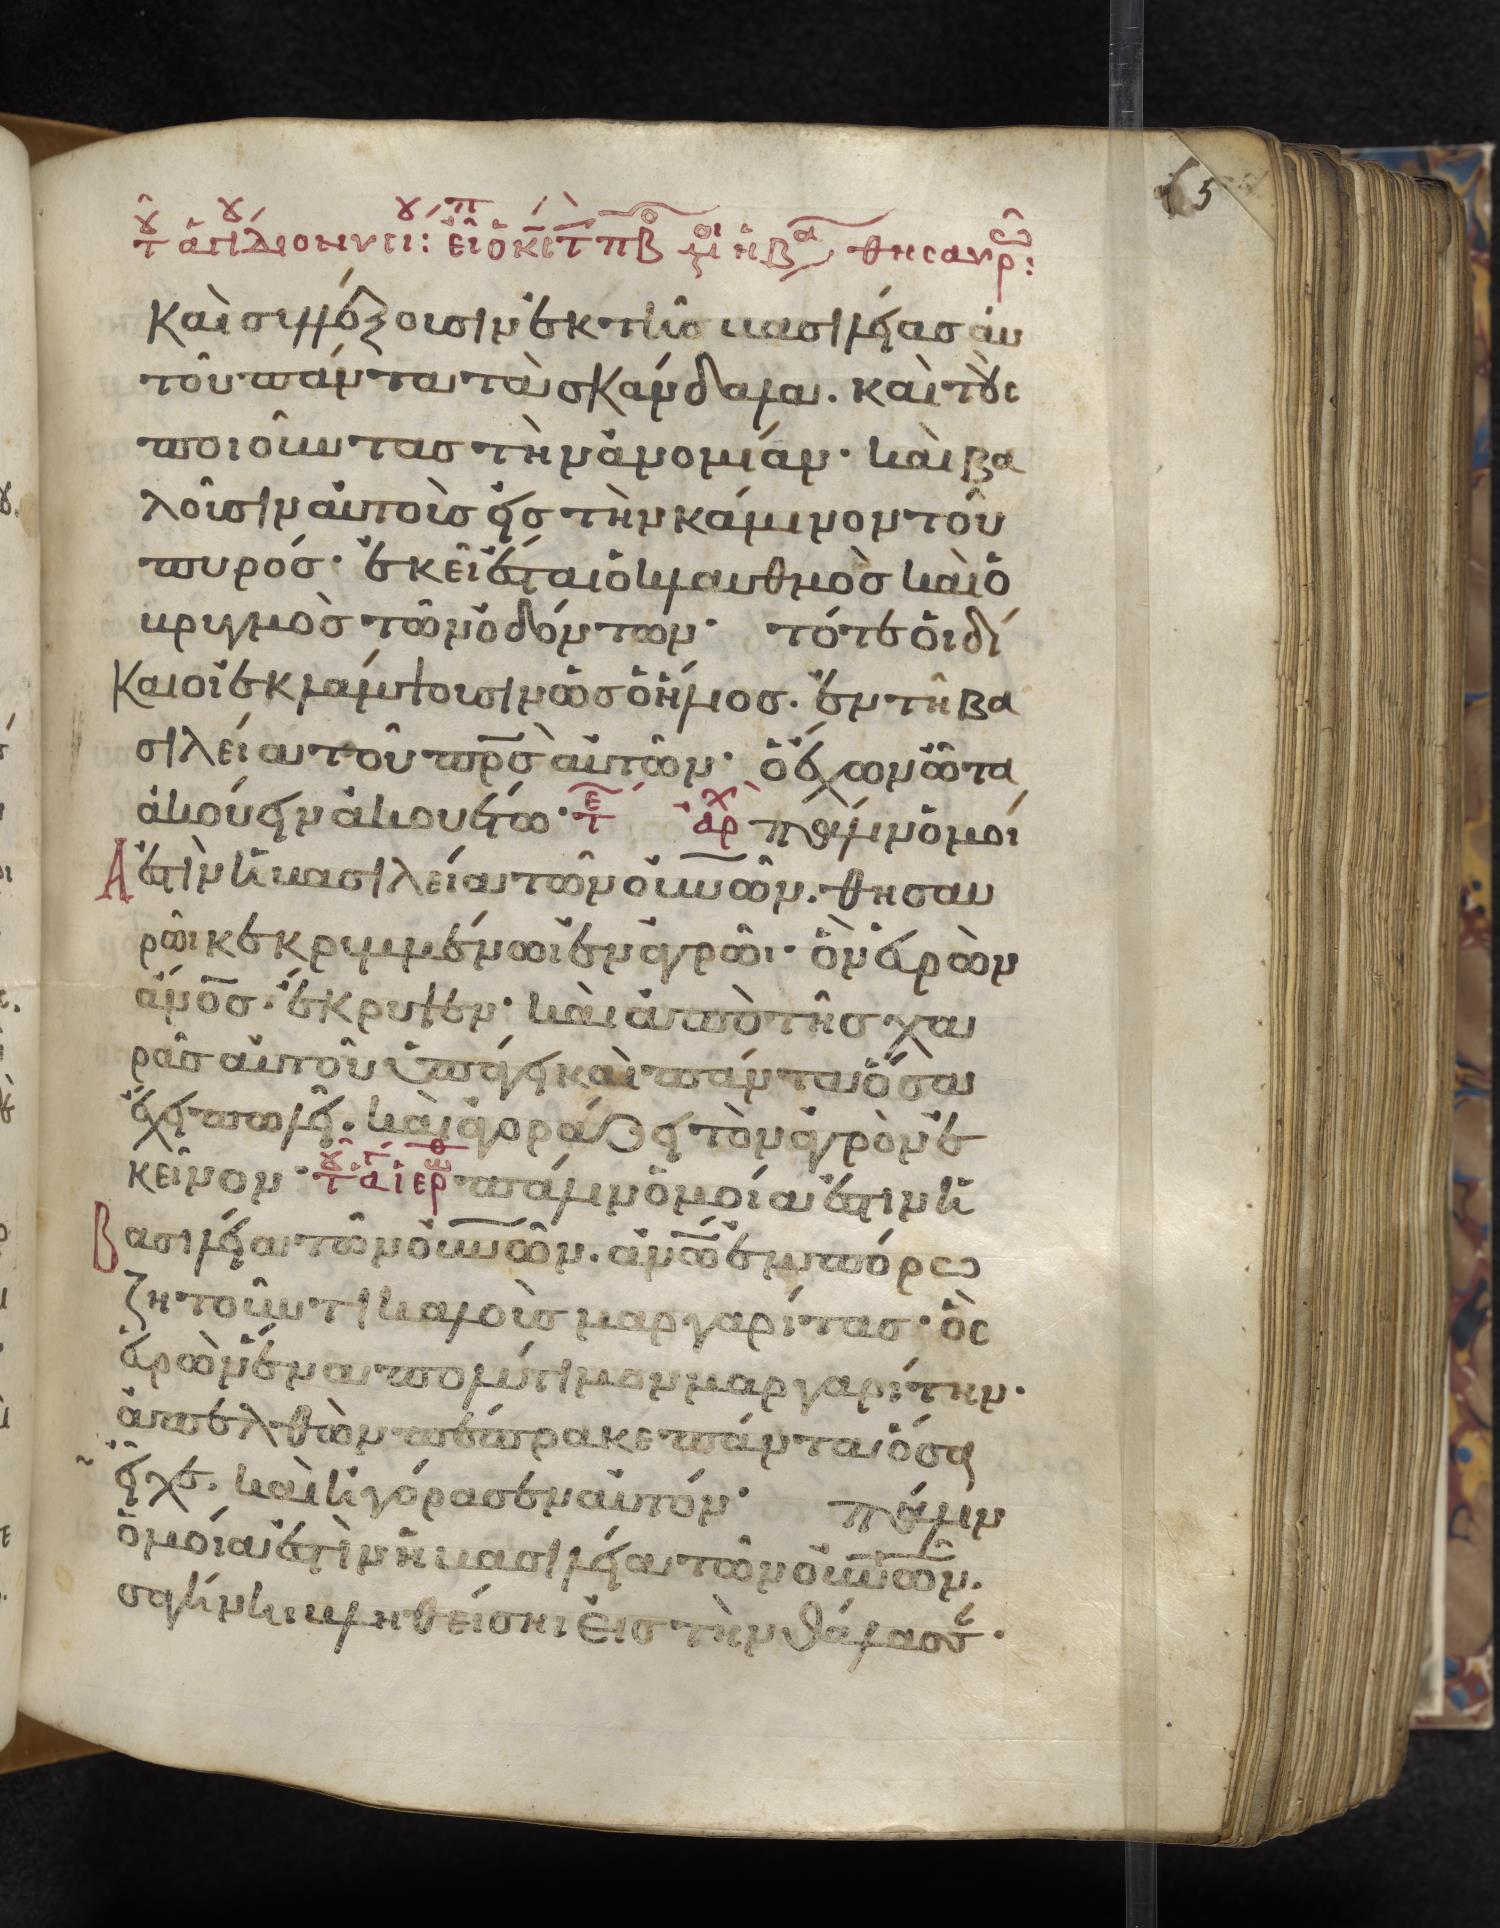 καὶ συλλέξουσιν ἐκ τῆς βασιλείας αὐ
τοῦ πάντα τὰ σκάνδαλα. καὶ τοὺς
ποιοῦντας τὴν ἀνομίαν· καὶ βα
λοῦσιν αὐτοὺς εἰς τὴν κάμινον τοῦ
πυρός· ἐκεῖ ἔσται ὁ κλαυθμὸς καὶ ὁ
βρυγμὸς τῶν ὀδόντων· τότε οἱ δί
καιοι ἐκλάμψουσιν ὡς ὁ ἥλιος. ἐν τῇ βα
σιλείᾳ τοῦ πρσ αὐτῶν· ὁ ἔχων ὦτα
ἀκούειν ἀκουέτω· πάλιν ὁμοί
Α ἐστὶν ἡ βασιλεία τῶν οὐνῶν. θησαυ
ρῶι κεκρυμμένωι ἐν ἀγρῶι· ὃν εὑρὼν
ἄνοσ. ἔκρυψεν· καὶ ἀπὸ τῆς χα
ρᾶς αὐτοῦ ὑπάγει καὶ πάντα ὅσα
ἔχει πωλεῖ. καὶ ἀγοράζει τὸν ἀγρὸν ἐ
κεῖνον· πάλιν ὁμοία ἐστὶν ἡ
Βασιλεία τῶν οὐνῶν. ἀνω ἐμπόρω
ζητοῦντι καλοὺς μαργαρίτας· ὃς
εὑρὼν ἕνα πολύτιμον μαργαρίτην·
ἀπελθὼν πέπρακε πάντα ὅσα
εἶχε. καὶ ἠγόρασεν αὐτόν· πάλιν
ὁμοία ἐστὶν ἡ βασιλεία τῶν οὐνῶν.
σαγήνηι βληθείσηι εἰς τὴν θάλασσ·